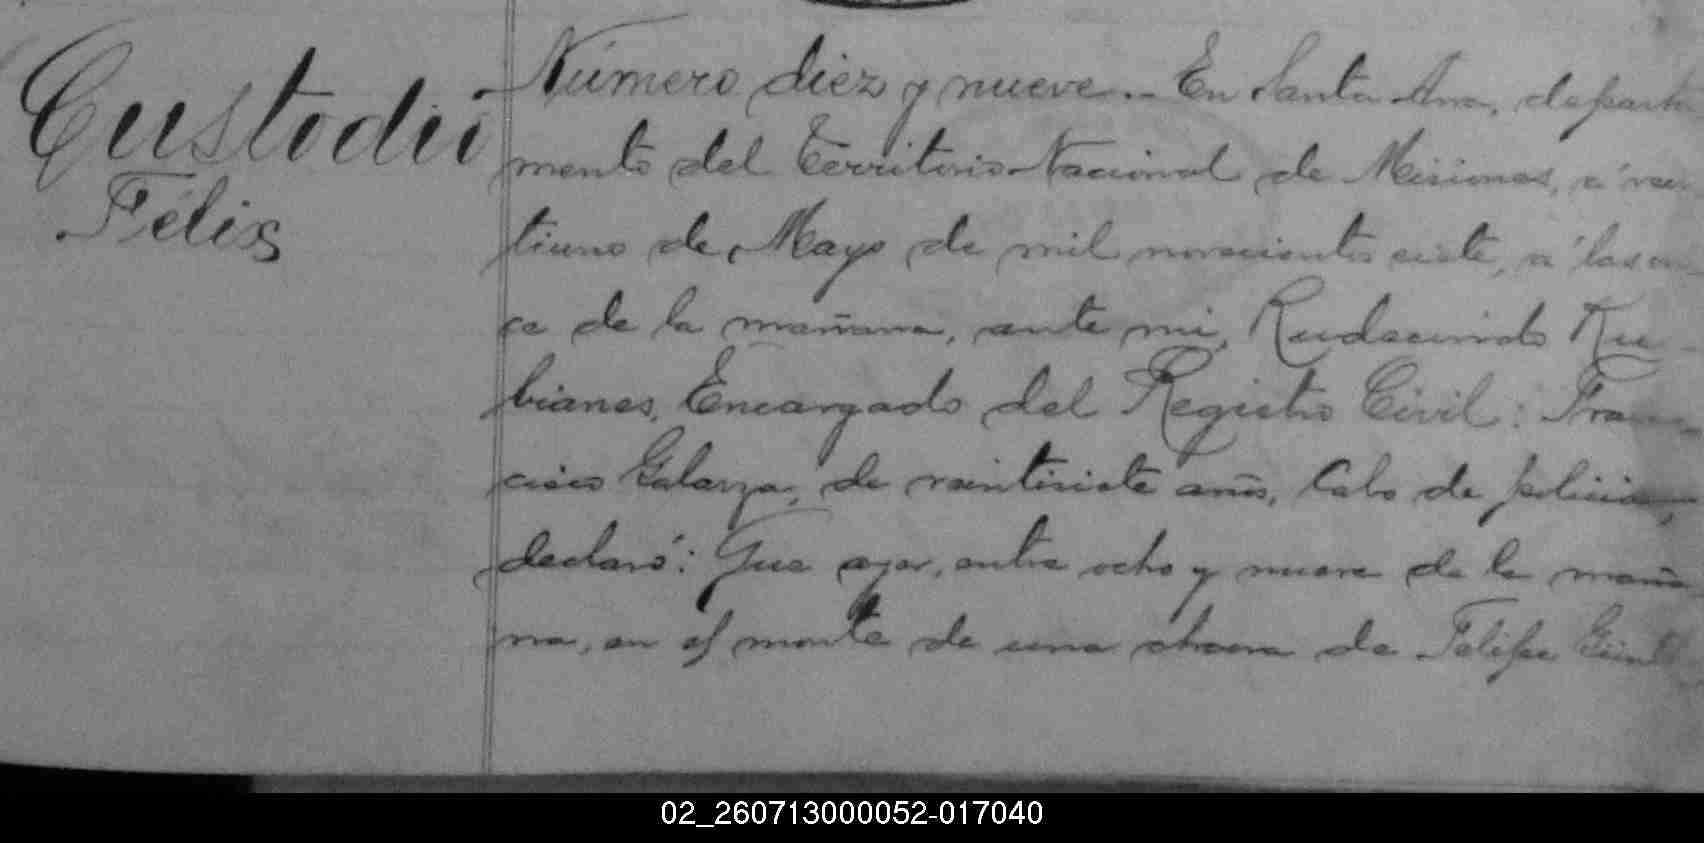 Custodio
Félix
Número diez y nueve.- En Santa Ana, departa
mento del Territorio Nacional de Misiones, á vein
tiuno de Mayo de mil novecientos siete, á las on
ce de la mañana, ante mi, Rudecindo Ru-
bianes, Encargado del Registro Civil: Fran-
cisco Galarza, de veintisiete años, Cabo de policia,
declaró: Que ayer, entre ocho y nueve de la maña
na, en el monte de una chacra de Felipe
02_260713000052-017040